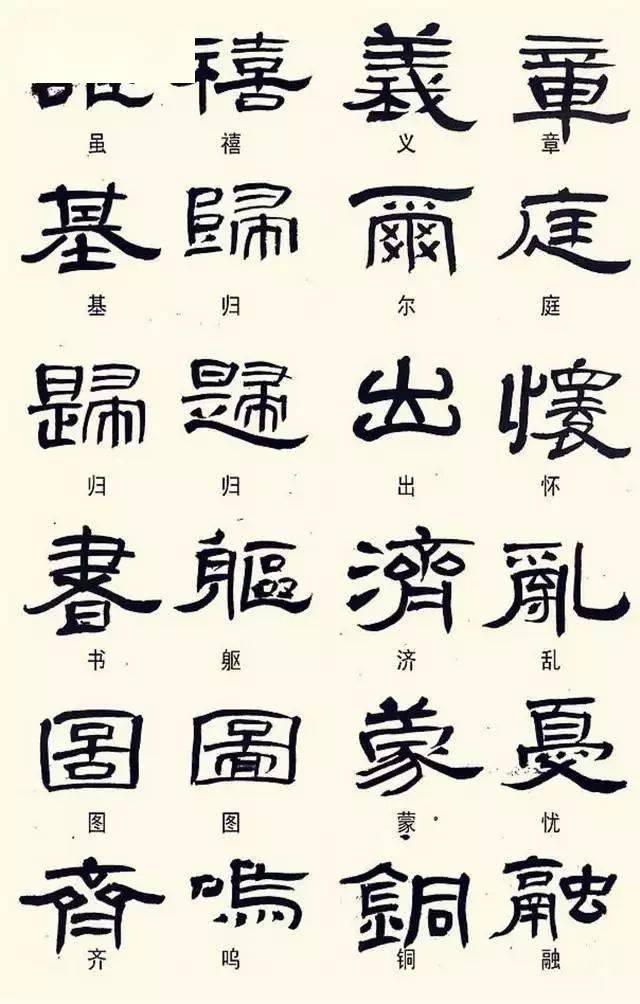 禧 義 章
虽 禧 义 章
基 歸 爾 庭
基 归 尔 庭
歸 歸 出 懷
归 归 出 怀
書 軀 濟 亂
书 躯 济 乱
圖 圖 蒙 憂
图 图 蒙 忧
齊 嗚 銅 融
齐 呜 铜 融